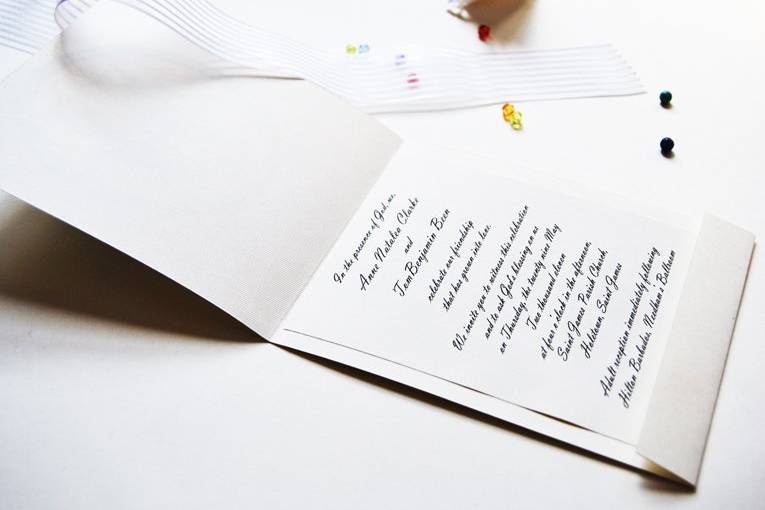 In the presence of God, we,
Anne Natalea Clarke
and
Tam Benjamin Been
celebrate our friendship
that has grown into love.
We invite you to witness this celebration
and to ask God's blessing on us
on Thursday, the twenty nine May
Two thousand eleven
at four o'clock in the afternoon,
Saint James Parish Church,
Holetown, Saint James
Adult reception immediately following
Hilton Barbados, Needham's Ballroom